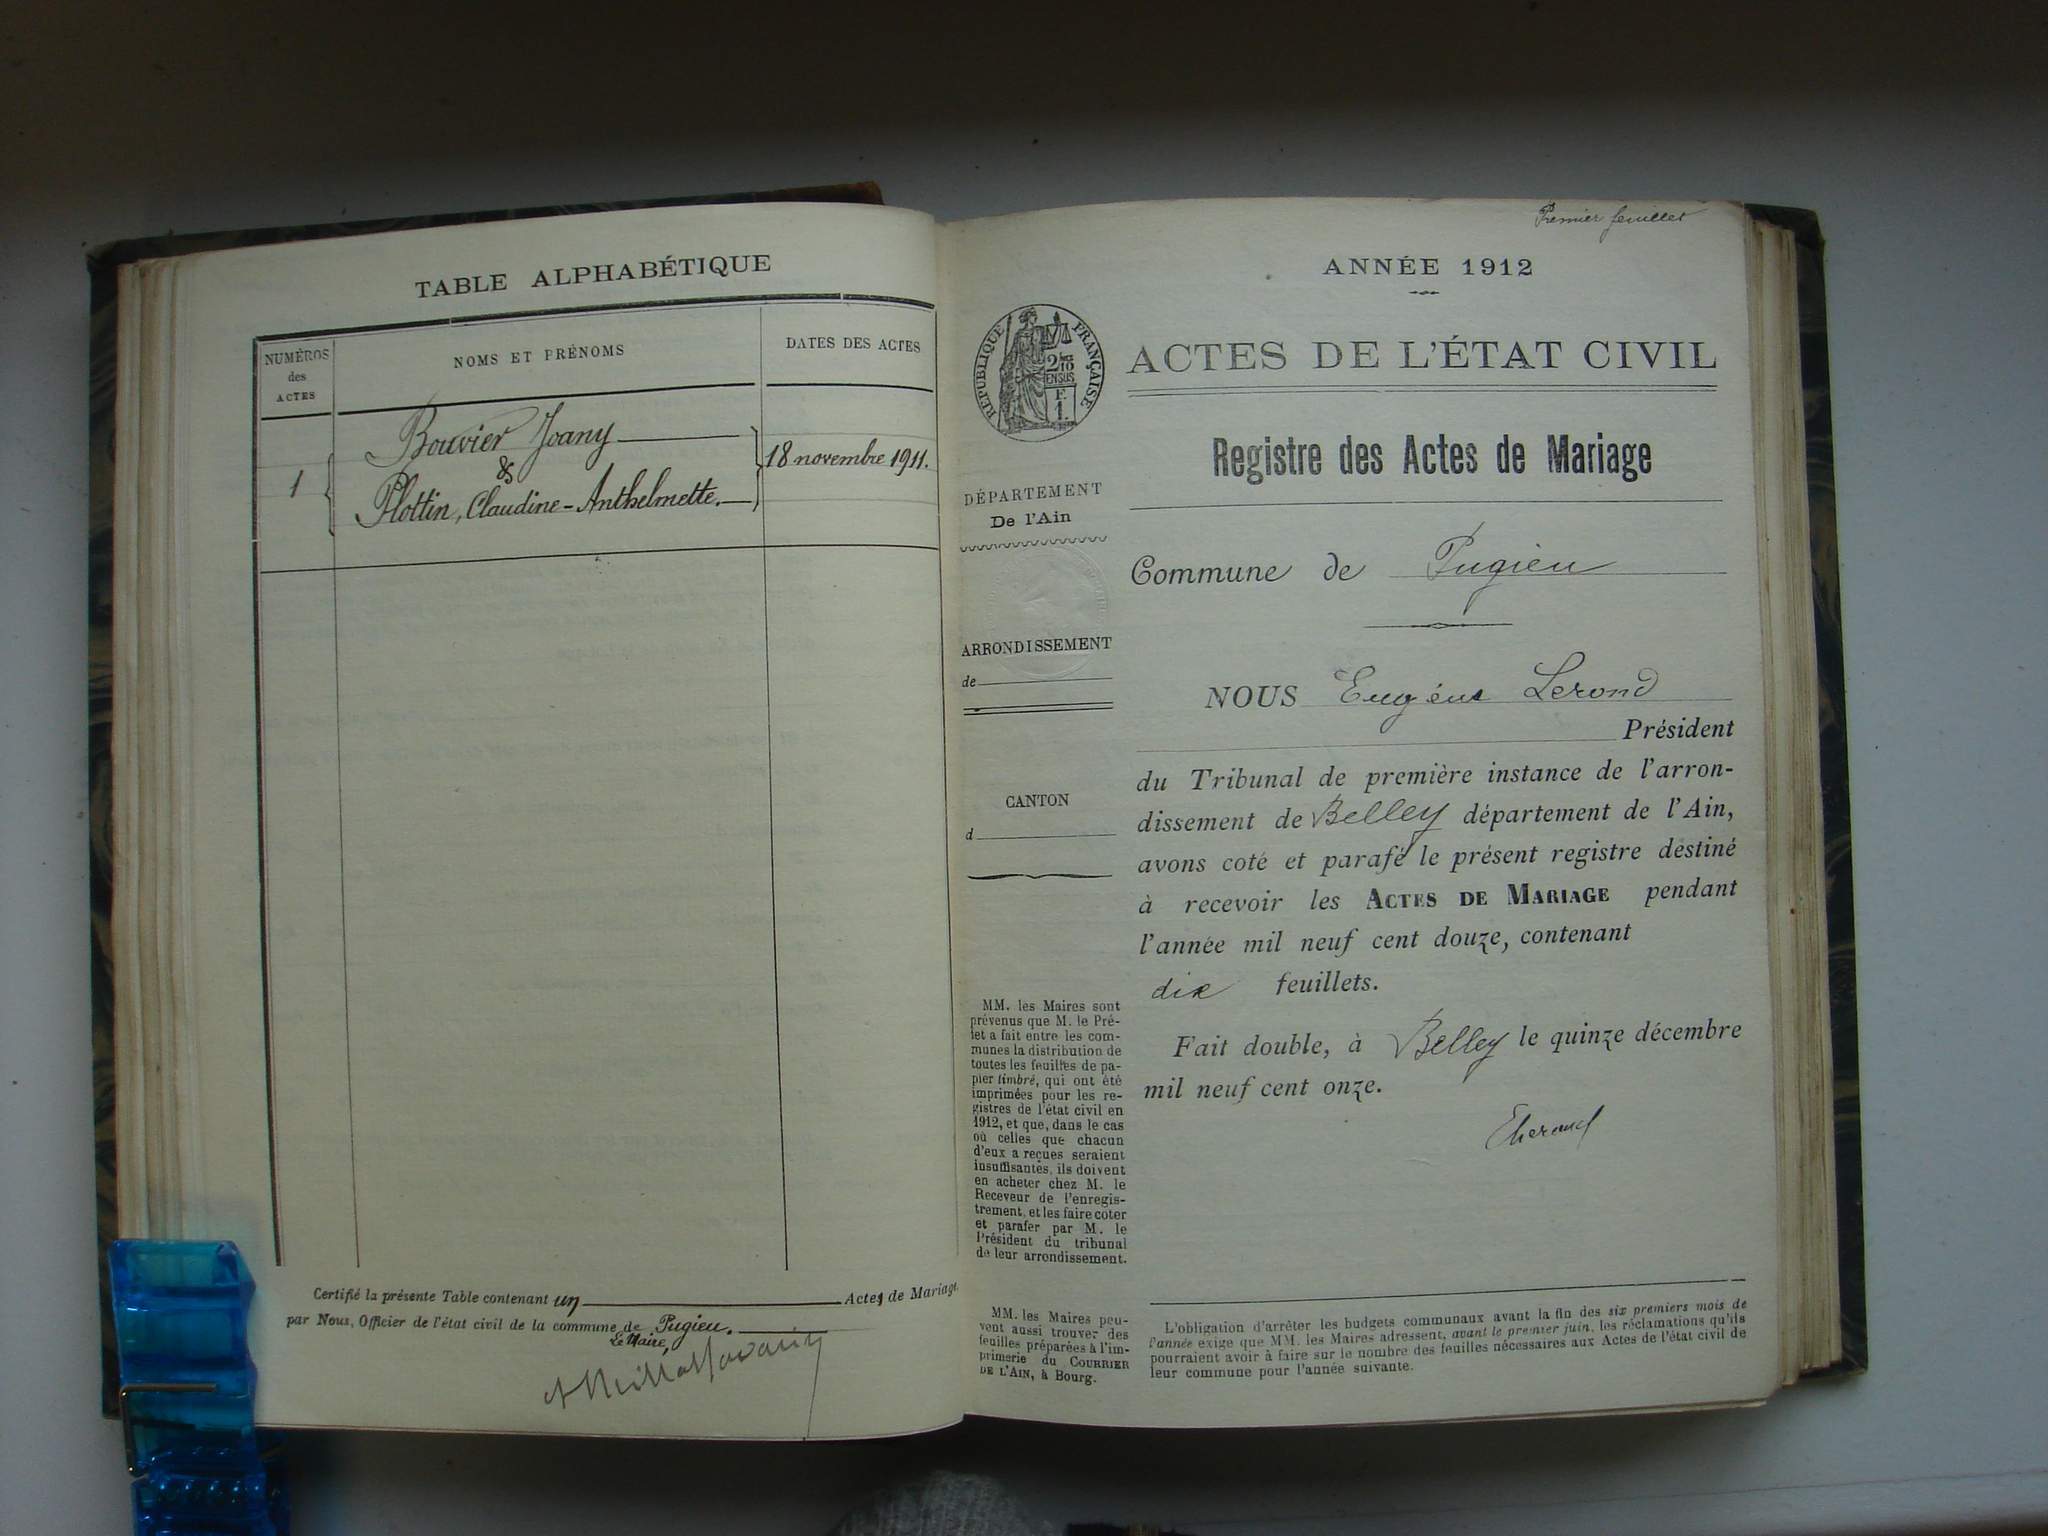 TABLE ALPHABÉTIQUE
NUMÉROS
des
ACTES
NOMS ET PRÉNOMS
DATES DES ACTES
Bouvier Joany
&
1
18 novembre 1911.
Plottin, Claudine-Anthelmette.
Certifié la présente Table contenant un Actes de Mariage
par Nous, Officier de l'état civil de la commune de Pugieu.
Le Maire,
Premier feuillet
ANNÉE 1912
RÉPUBLIQUE FRANÇAISE
2/10
EN SUS
F.
1.
ACTES DE L'ÉTAT CIVIL
Registre des Actes de Mariage
DÉPARTEMENT
De l'Ain
Commune de Pugieu
ARRONDISSEMENT
de
CANTON
d
NOUS Eugène Lerond
Président
du Tribunal de première instance de l'arron-
dissement de Belley département de l'Ain,
avons coté et parafé le présent registre destiné
à recevoir les ACTES DE MARIAGE pendant
l'année mil neuf cent douze, contenant
dix feuillets.
Fait double, à Belley le quinze décembre
mil neuf cent onze.
MM. les Maires sont
prévenus que M. le Pré-
fet a fait entre les com-
munes la distribution de
toutes les feuilles de pa-
pier timbré, qui ont été
imprimées pour les re-
gistres de l'état civil en
1912, et que, dans le cas
où celles que chacun
d'eux a reçues seraient
insuffisantes, ils doivent
en acheter chez M. le
Receveur de l'enregis-
trement, et les faire coter
et parafer par M. le
Président du tribunal
de leur arrondissement.
MM. les Maires peu-
vent aussi trouver des
feuilles préparées à l'im-
primerie du COURRIER
DE L'AIN, à Bourg.
L'obligation d'arrêter les budgets communaux avant la fin des six premiers mois de
l'année exige que MM. les Maires adressent, avant le premier juin, les réclamations qu'ils
pourraient avoir à faire sur le nombre des feuilles nécessaires aux Actes de l'état civil de
leur commune pour l'année suivante.